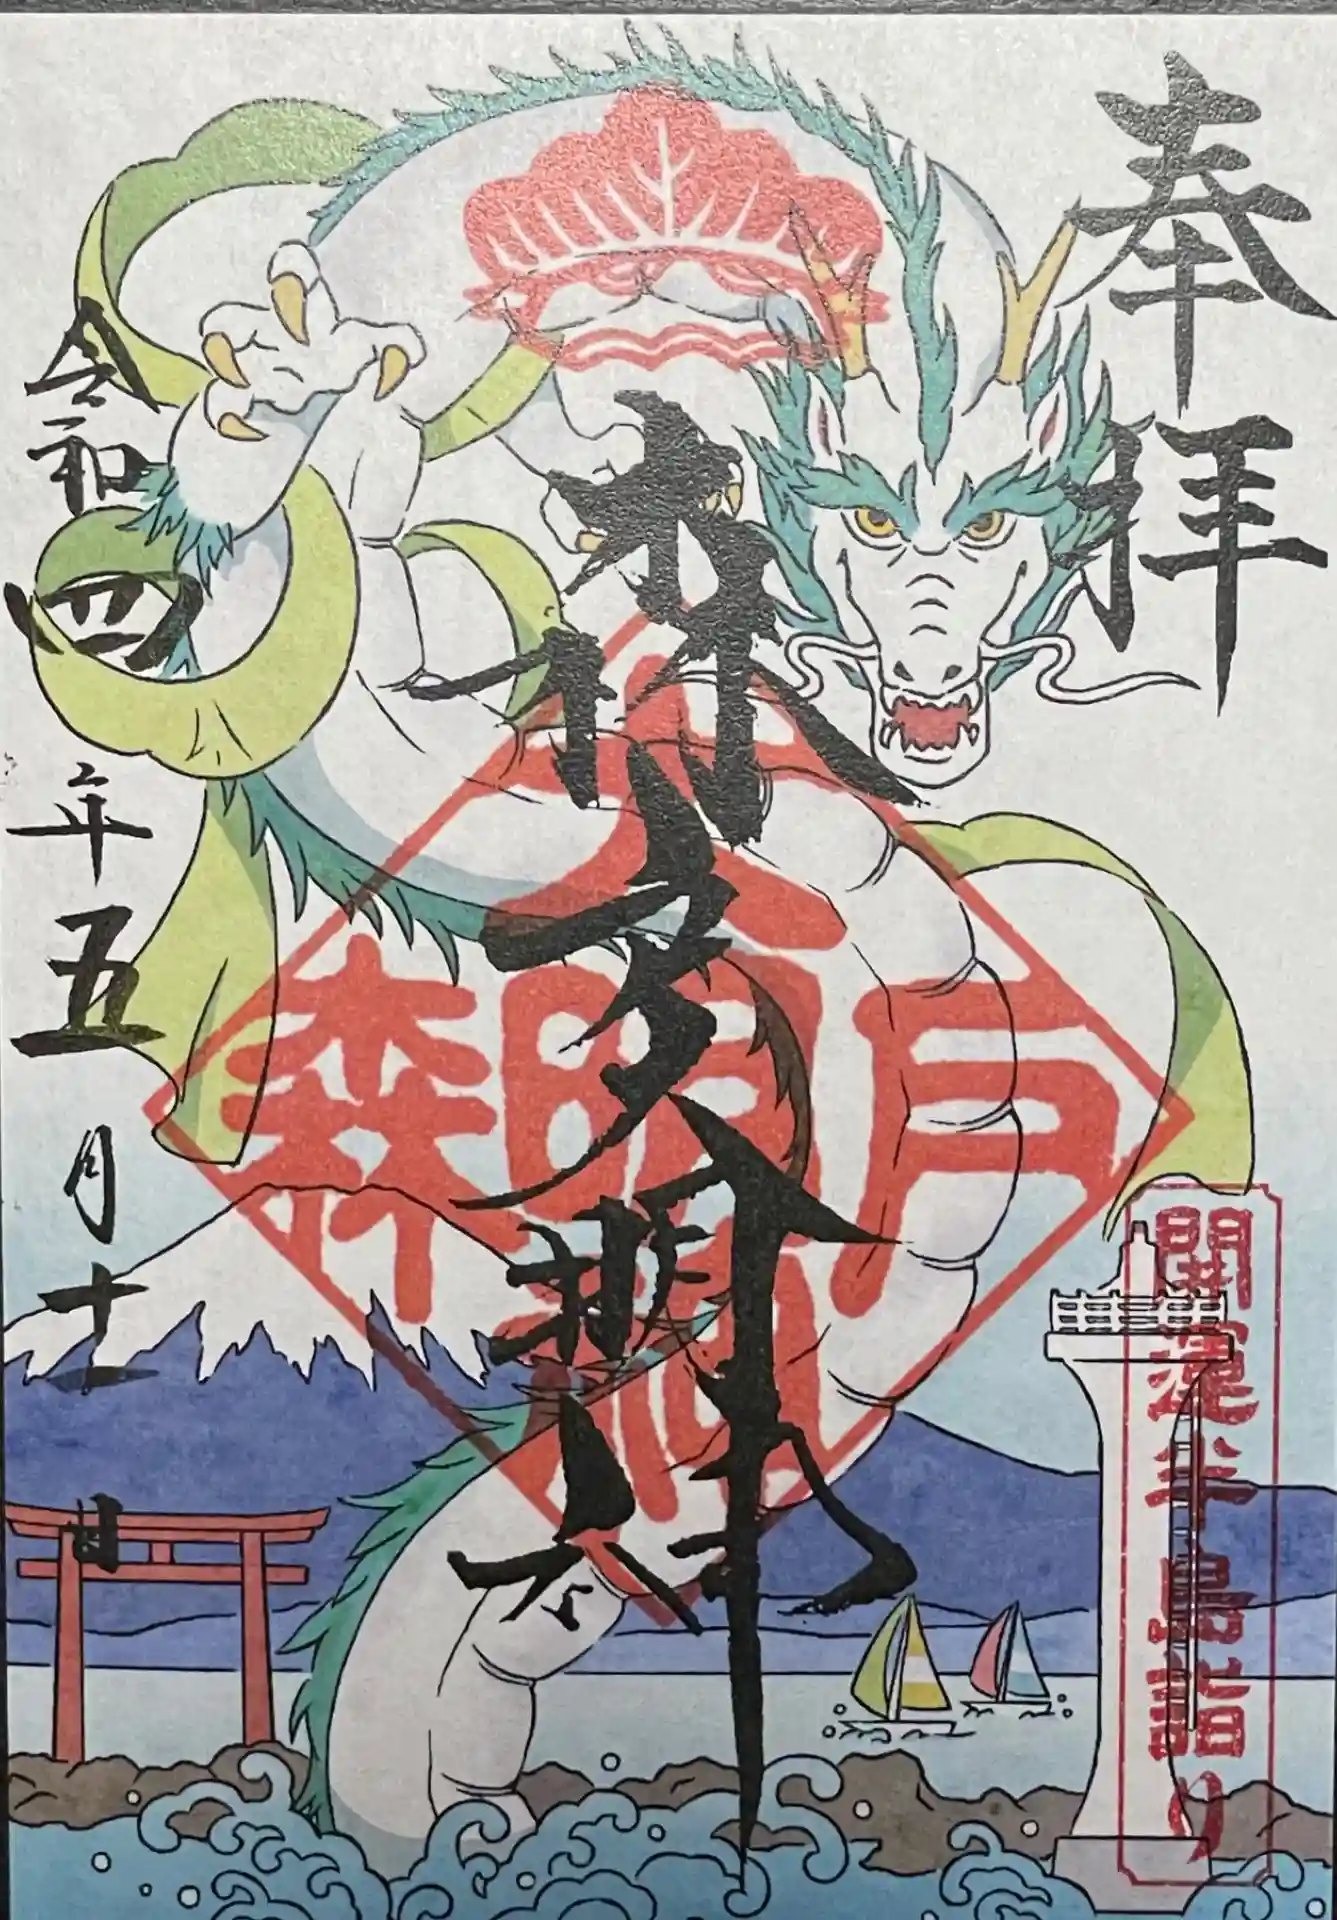 奉拝
森戸大明神
令和四年五月十一日
森戸大明神
開運半島詣り